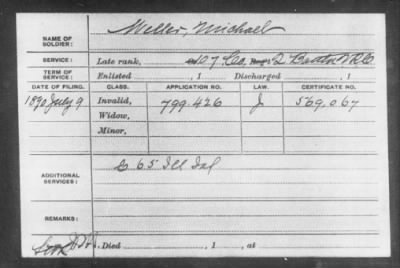 Weller, Michael
NAME OF
SOLDIER:
SERVICE: Late rank, 107 Co. Regt 2 Batt'n V R C
TERM OF
SERVICE: Enlisted , 1 Discharged , 1
DATE OF FILING. CLASS. APPLICATION NO. LAW. CERTIFICATE NO.
1890 July 9 Invalid, 799.426 J 569.067
Widow,
Minor,
ADDITIONAL
SERVICES: G 65 Ill Inf
REMARKS:
Died , 1 , at